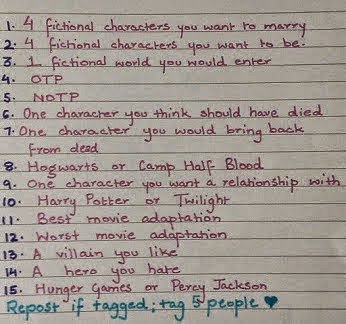 1. 4 fictional characters you want to marry
2. 4 fictional characters you want to be.
3. 1 fictional world you would enter
4. OTP
5. NOTP
6. One character you think should have died
7. One character you would bring back
from dead
8. Hogwarts or Camp Half Blood
9. One character you want a relationship with
10. Harry Potter or Twilight
11. Best movie adaptation
12. Worst movie adaptation
13. A villain you like
14. A hero you hate
15. Hunger Games or Percy Jackson
Repost if tagged; tag 5 people ♥